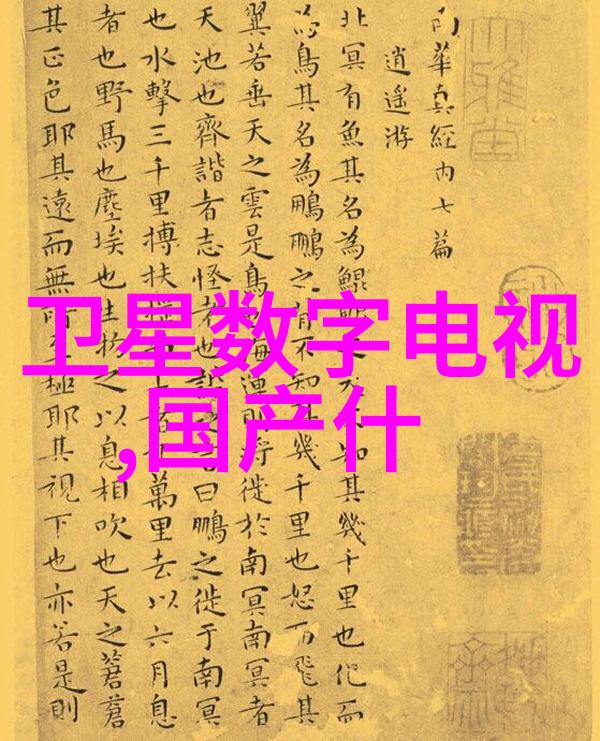 南華真經内七篇
逍遙游
北冥有魚其名為鯤鯤之大不知其幾千里也化而
為鳥其名為鵬鵬之背不知其幾千里也怒而飛其
翼若垂天之雲是鳥也海運則將徙於南冥南冥者
天池也齊諧者志怪者也諧之言曰鵬之徙于南冥
也水擊三千里摶扶搖而上者九萬里去以六月息
者也野馬也塵埃也生物之以息相吹也天之蒼蒼
其正色耶其遠而無所至極耶其視下也亦若是則
卫星数字电视
,国产什